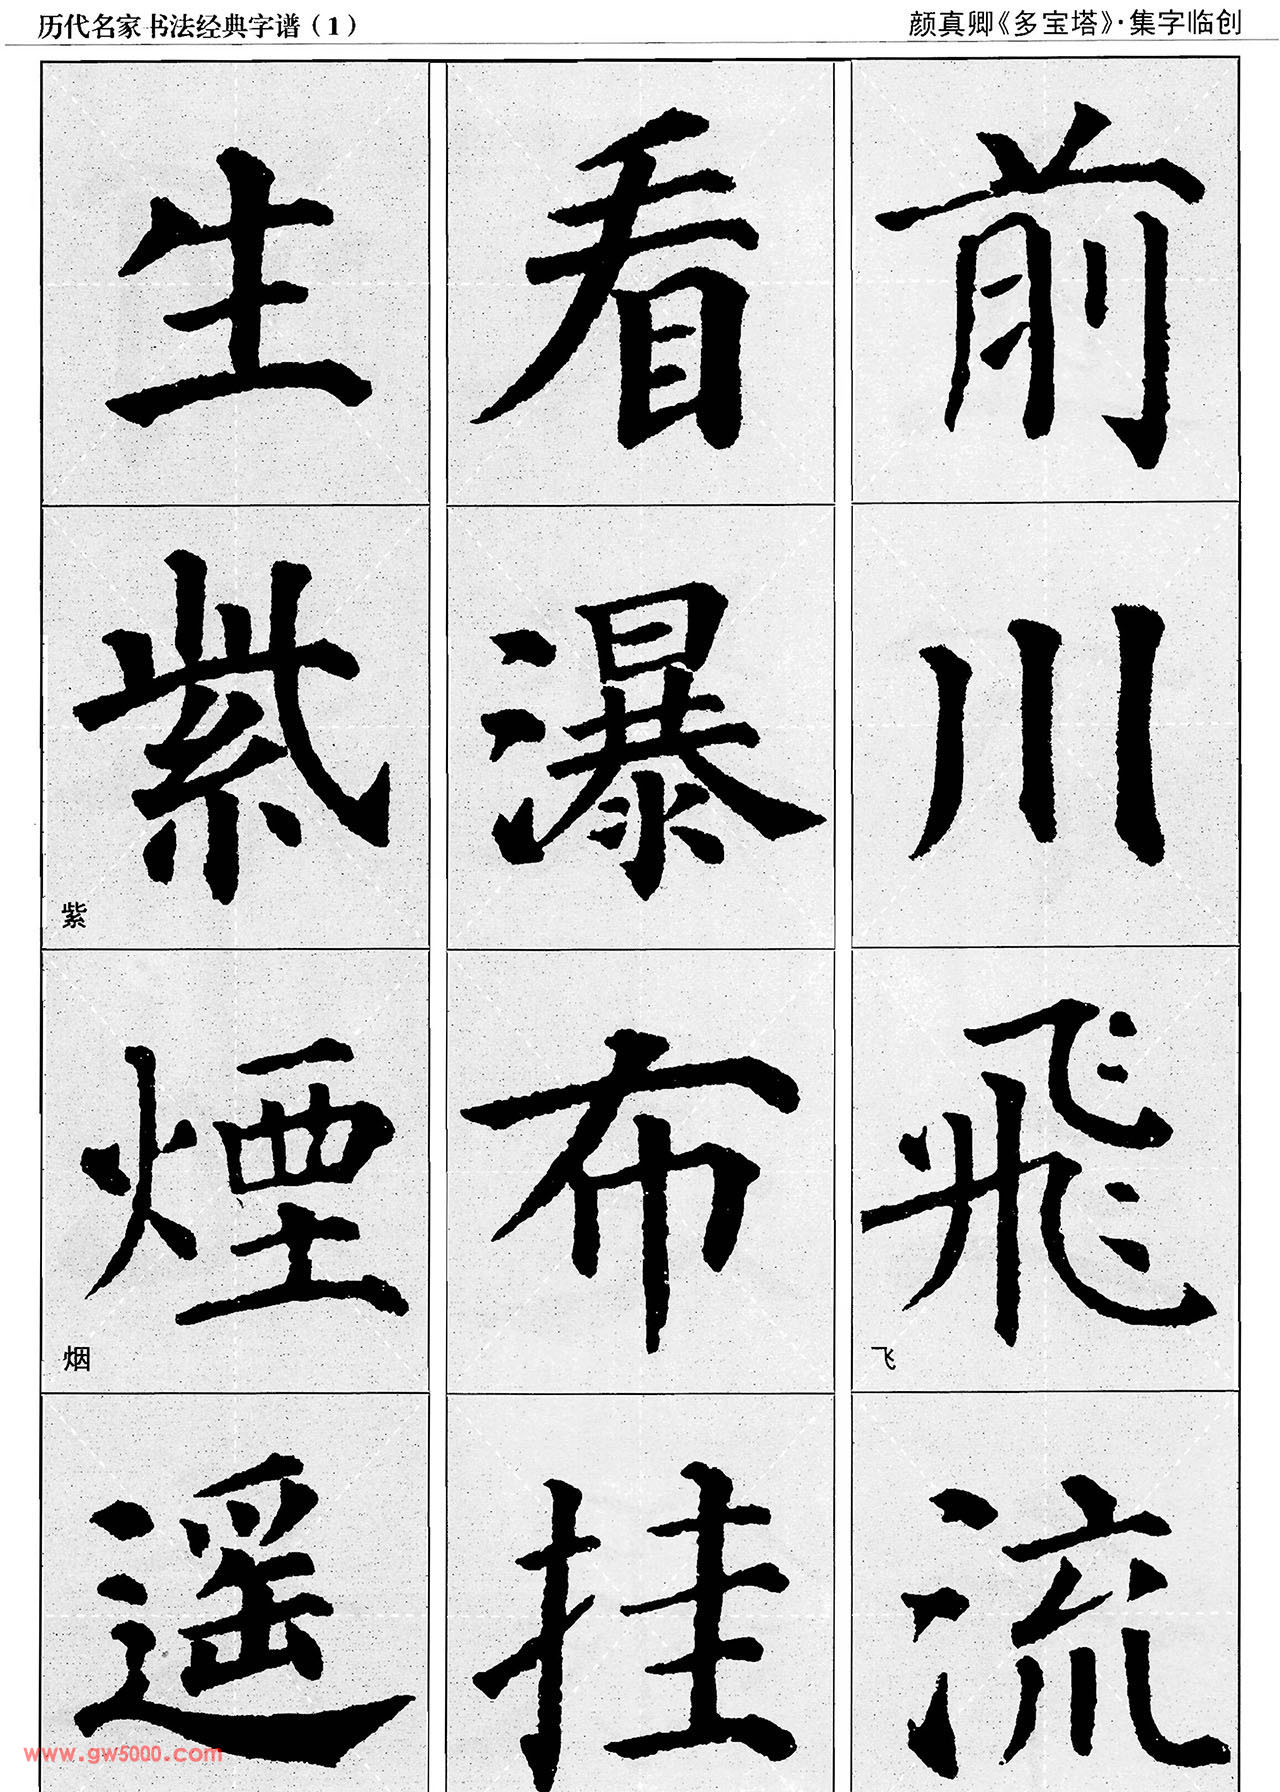 历代名家书法经典字谱（1）
颜真卿《多宝塔》·集字临创
前川飛流
飞
看瀑布挂
生紫煙遥
紫
烟
www.gw5000.com